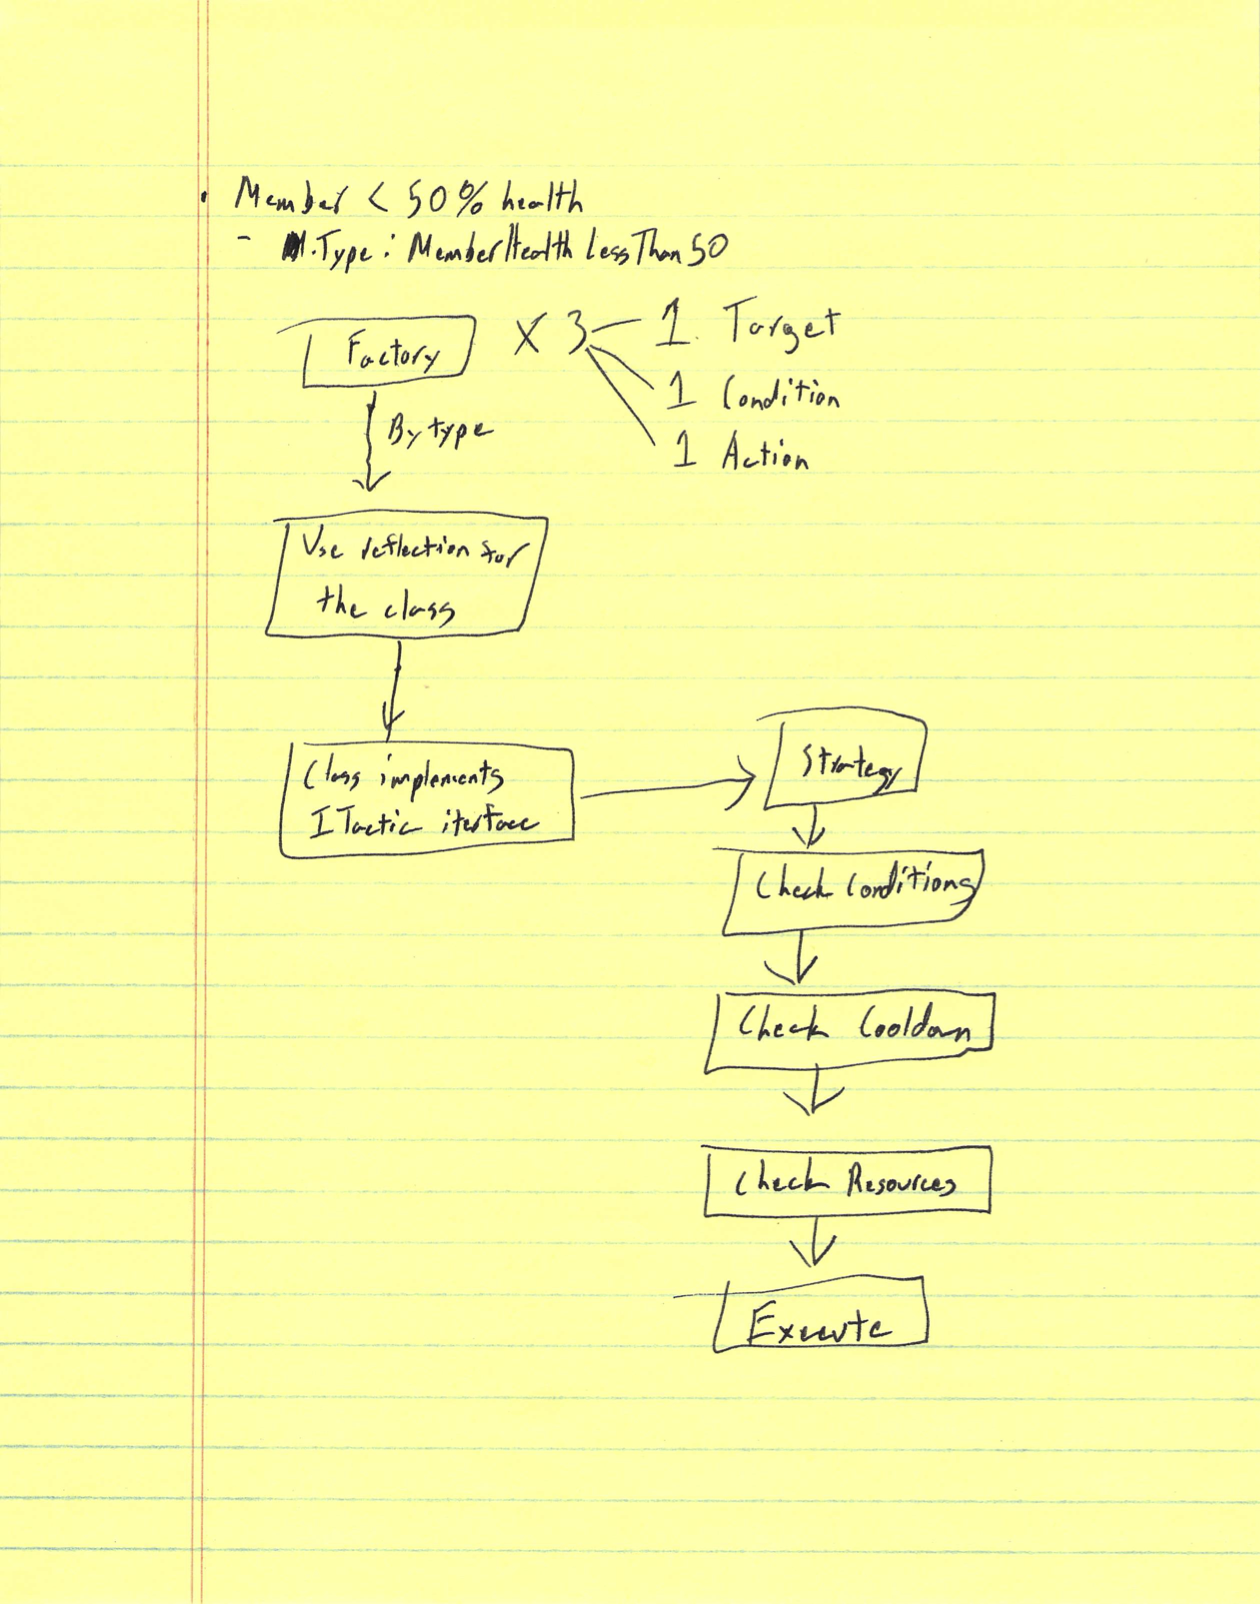 • Member < 50% health
- M.Type: MemberHealthLessThan50
Factory
X 3
1 Target
1 Condition
1 Action
By type
Use reflection for
the class
Class implements
ITactic iterface
Strategy
Check Conditions
Check Cooldown
Check Resources
Execute